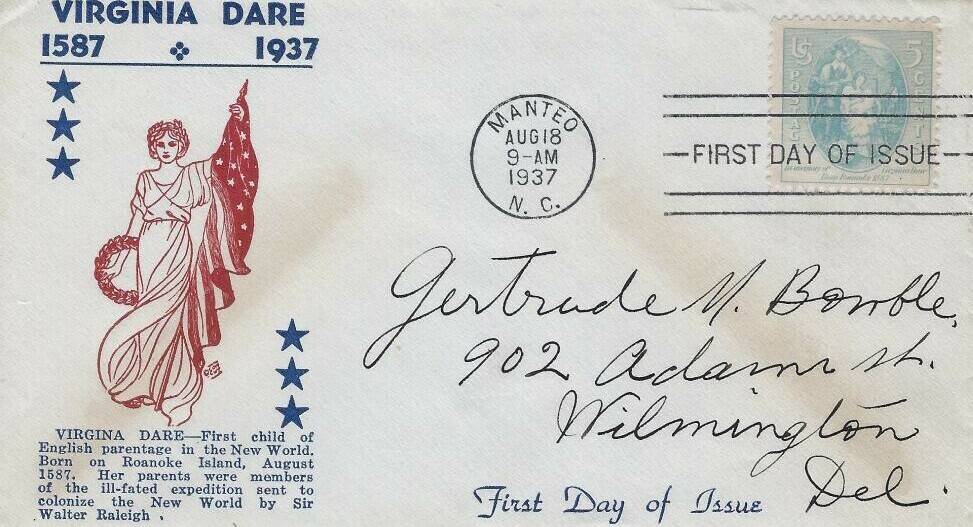 VIRGINIA DARE
1587 1937
VIRGINA DARE—First child of
English parentage in the New World.
Born on Roanoke Island, August
1587. Her parents were members
of the ill-fated expedition sent to
colonize the New World by Sir
Walter Raleigh .
MANTEO
AUG 18
9-AM
1937
N. C.
US POSTAGE
5 CENTS
In memory of Virginia Dare
Born Roanoke 1587
FIRST DAY OF ISSUE
Gertrude M. Bowble,
902 Adams St.
Wilmington
Del.
First Day of Issue